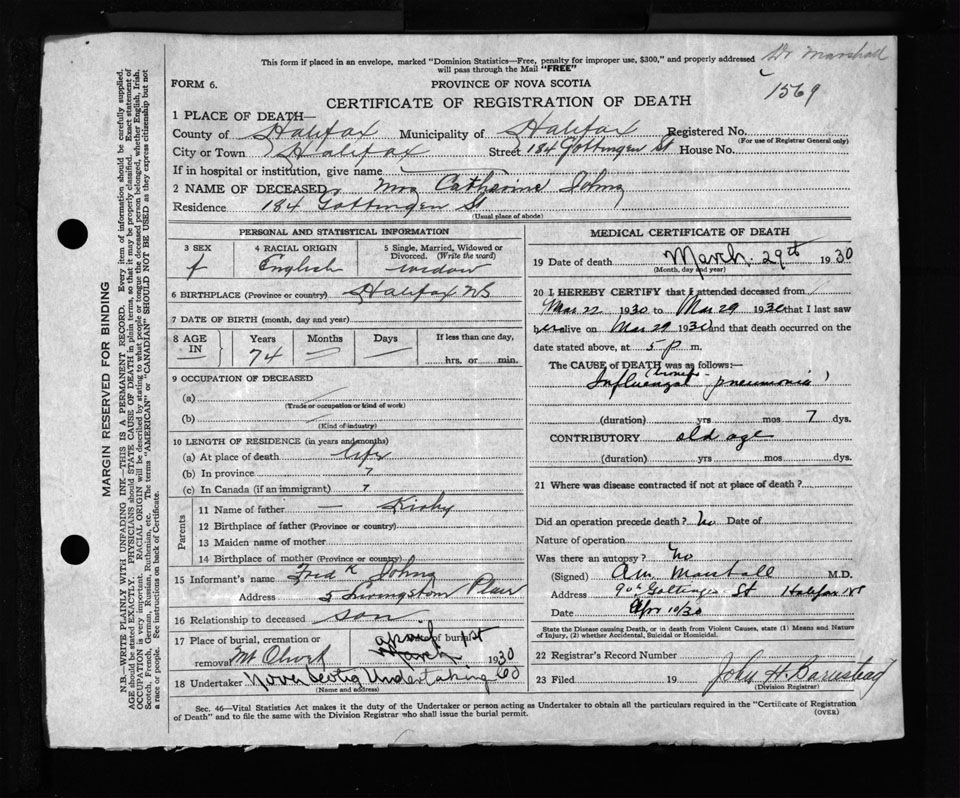 This form if placed in an envelope, marked "Dominion Statistics—Free, penalty for improper use, $300," and properly addressed Dr Marshall
will pass through the Mail "FREE"
FORM 6. PROVINCE OF NOVA SCOTIA
1569
CERTIFICATE OF REGISTRATION OF DEATH
1 PLACE OF DEATH—
County of Halifax Municipality of Halifax Registered No.
(For use of Registrar General only)
City or Town Halifax Street 184 Gottingen St House No.
If in hospital or institution, give name
2 NAME OF DECEASED Mrs Catharine Johns
Residence 184 Gottingen St
(Usual place of abode)
PERSONAL AND STATISTICAL INFORMATION
3 SEX 4 RACIAL ORIGIN 5 Single, Married, Widowed or
Divorced. (Write the word)
f English widow
6 BIRTHPLACE (Province or country) Halifax NS
7 DATE OF BIRTH (month, day and year)
8 AGE IN Years Months Days If less than one day,
74 — — hrs. or min.
9 OCCUPATION OF DECEASED
(a)
(Trade or occupation or kind of work)
(b)
(Kind of industry)
10 LENGTH OF RESIDENCE (in years and months)
(a) At place of death life
(b) In province "
(c) In Canada (if an immigrant) "
Parents
11 Name of father — Kirby
12 Birthplace of father (Province or country)
13 Maiden name of mother
14 Birthplace of mother (Province or country)
15 Informant's name Fred K Johns
Address 5 Livingstone Place
16 Relationship to deceased son
17 Place of burial, cremation or Date of burial April 1st
removal Mt Olivet March 1930
18 Undertaker Nova Scotia Undertaking Co
(Name and address)
MEDICAL CERTIFICATE OF DEATH
19 Date of death March 29th 1930
(Month, day and year)
20 I HEREBY CERTIFY that I attended deceased from
Mar 22 1930 to Mar 29 1930 that I last saw
her alive on Mar 29 1930 and that death occurred on the
date stated above, at 5 p m.
The CAUSE of DEATH was as follows:—
Influenzal (bronch) pneumonia
(duration) yrs mos 7 dys.
CONTRIBUTORY old age
(duration) yrs mos dys.
21 Where was disease contracted if not at place of death?
Did an operation precede death? No Date of
Nature of operation
Was there an autopsy? No
(Signed) A.M. Marshall M.D.
Address 90 Gottingen St Halifax NS
Date Apr 10/30
State the Disease causing Death, or in death from Violent Causes, state (1) Means and Nature
of Injury, (2) whether Accidental, Suicidal or Homicidal.
22 Registrar's Record Number
23 Filed 19 John H. Barnstead
(Division Registrar)
Sec. 46—Vital Statistics Act makes it the duty of the Undertaker or person acting as Undertaker to obtain all the particulars required in the "Certificate of Registration
of Death" and to file the same with the Division Registrar who shall issue the burial permit.
(OVER)
MARGIN RESERVED FOR BINDING
N.B.—WRITE PLAINLY WITH UNFADING INK—THIS IS A PERMANENT RECORD. Every item of information should be carefully supplied.
AGE should be stated EXACTLY. PHYSICIANS should STATE CAUSE OF DEATH in plain terms, so that it may be properly classified. Exact statement of
OCCUPATION is very important. RACIAL ORIGIN will be described by stating to what people or tongue the deceased person belonged, whether English, Irish,
Scotch, French, German, Russian, Ruthenian, etc. The terms "AMERICAN" or "CANADIAN" SHOULD NOT BE USED as they express citizenship but not
a race or people. See instructions on back of Certificate.